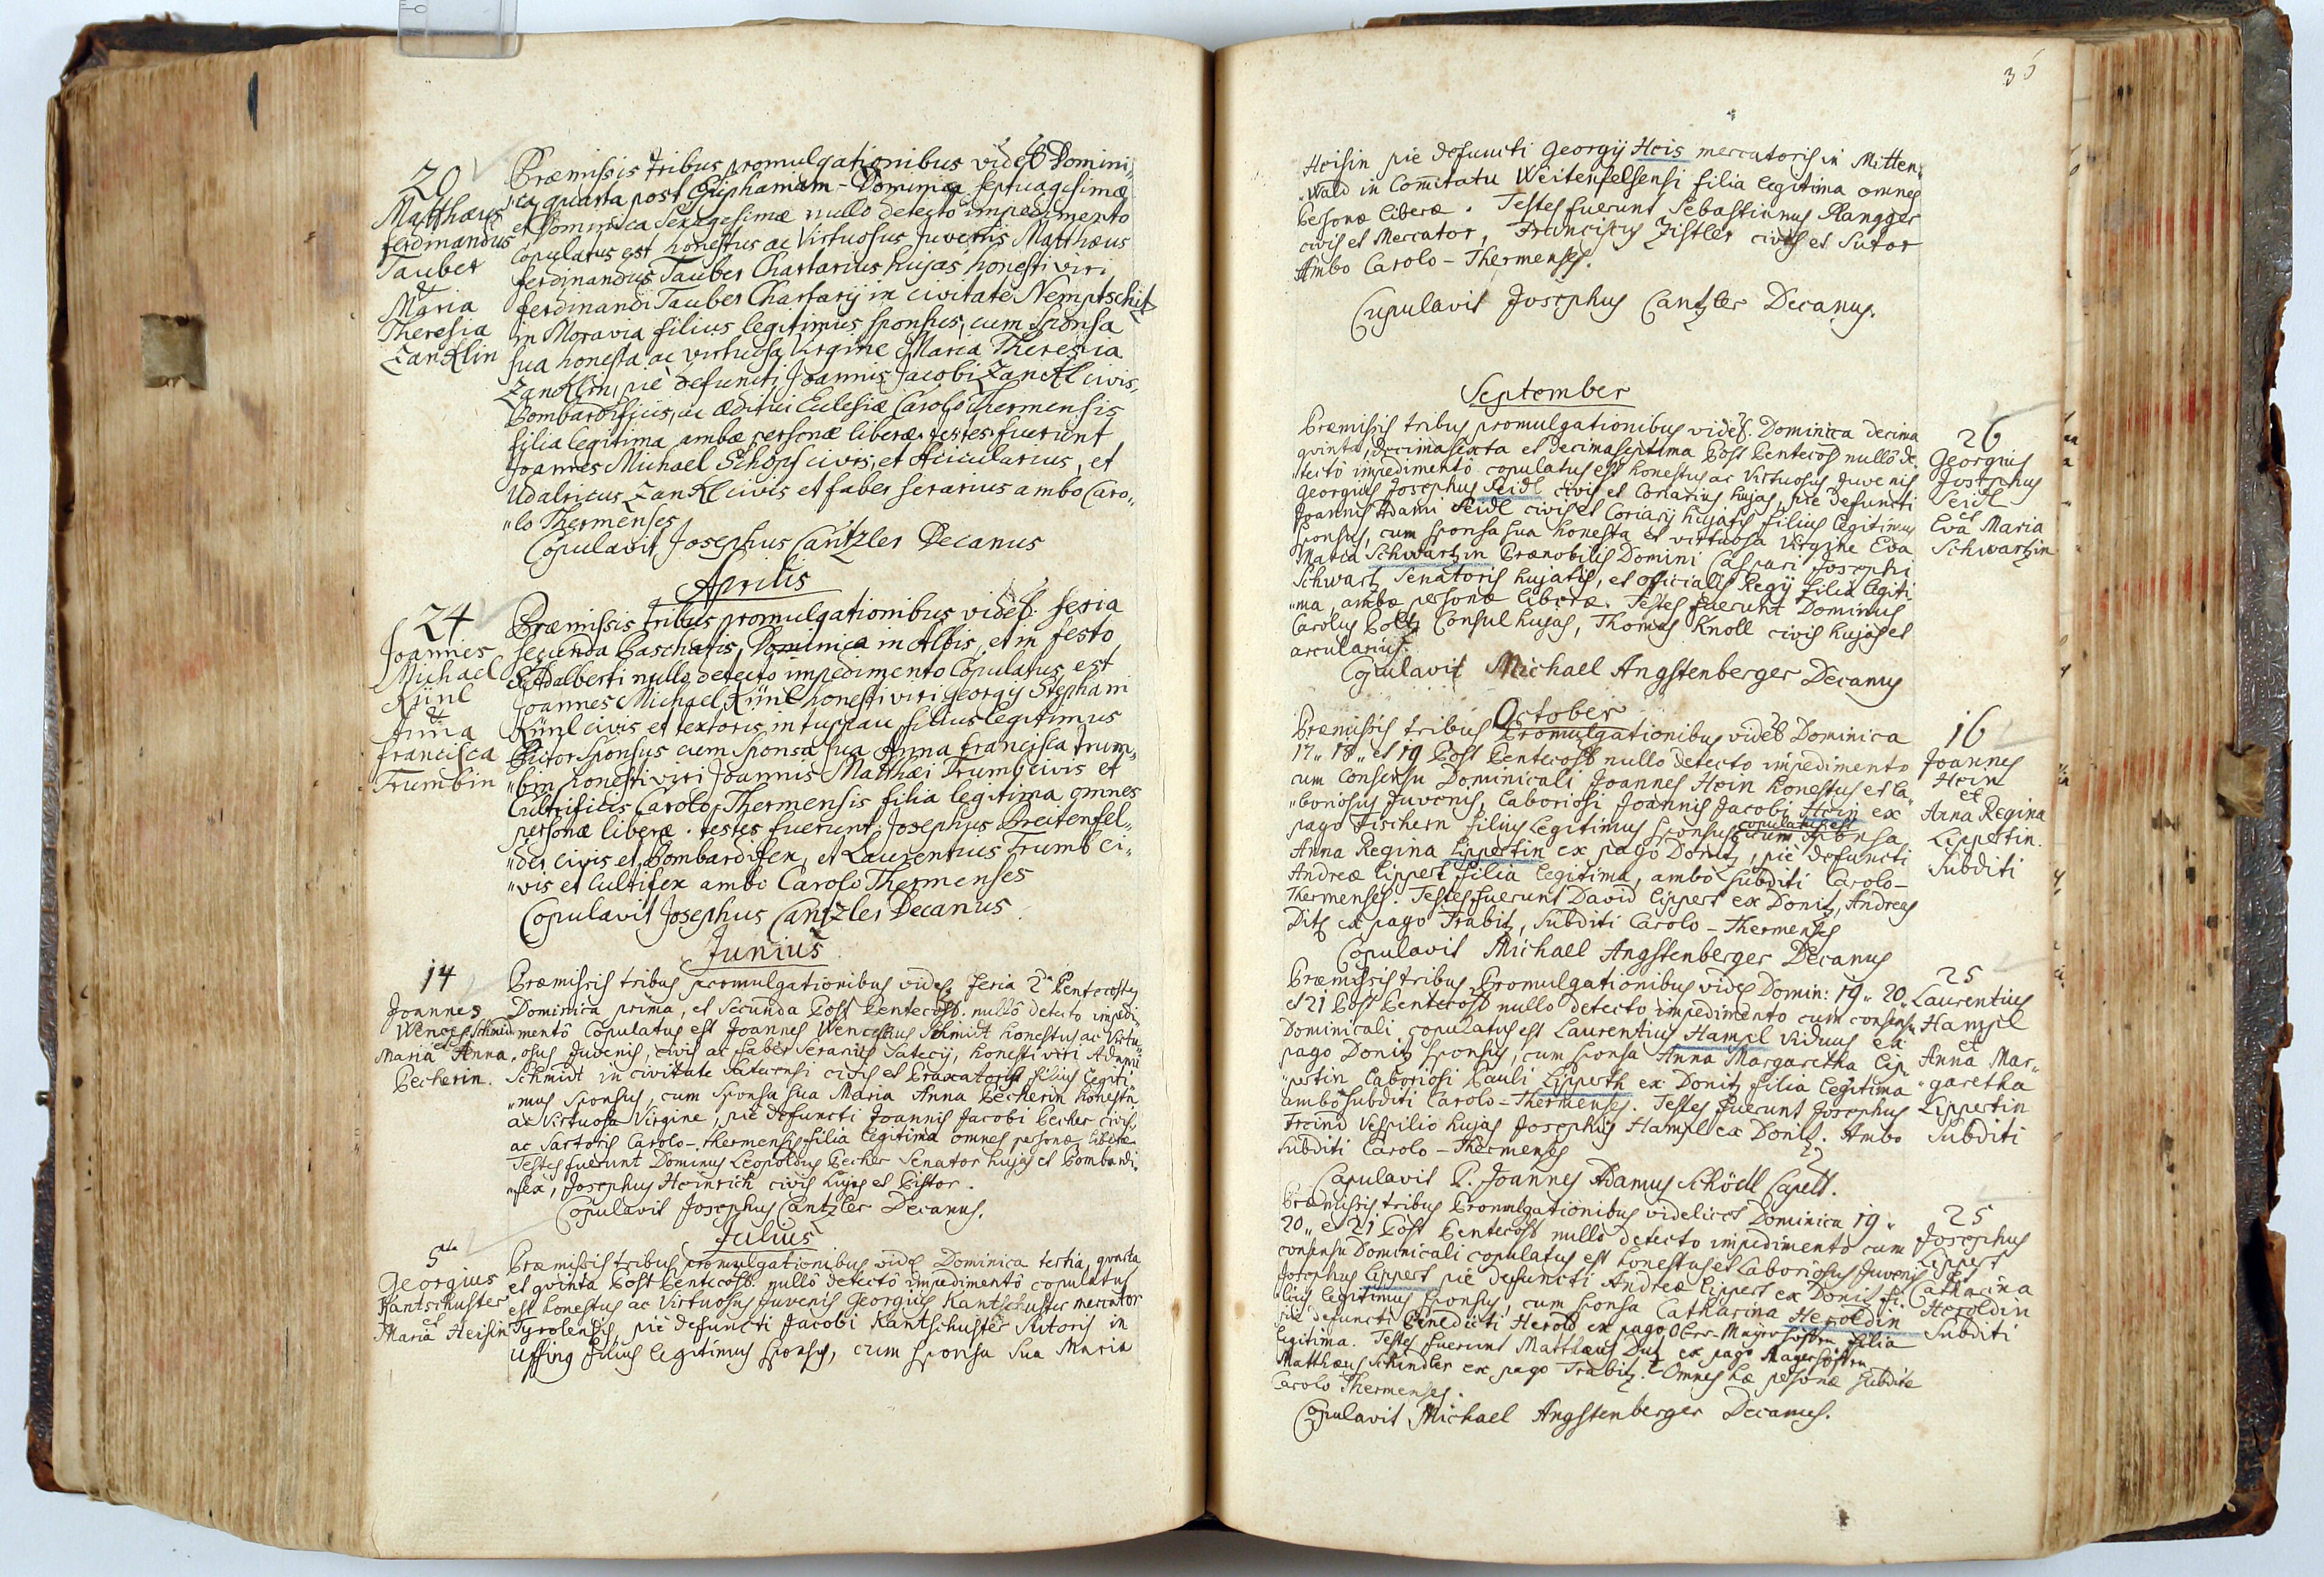 20
Matthæus
ferdinandus
Tauber
&
Maria
Theresia
Zancklin
Præmissis tribus promulgationibus videl. Domini„
„ca quarta post Epiphaniam – Dominica Septuagesimæ
et Dominica Sexagesimæ nullo detecto impedimento
Copulatus est honestus ac Virtuosus Juvenis Matthæus
ferdinandus Tauber Chartarius hujas honesti viri
ferdinandi Tauber Chartarij in civitate Nemptschitz
in Moravia filius legitimus sponsus, cum sponsa
sua honesta ac virtuosa virgine Maria Theresia
Zancklin, piè defuncti Joannis Jacobi Zanckl civis,
Bombardificis, ac æditui Eclesiæ Carolo Thermensis
filia legitima ambæ personæ liberæ. testes fuerunt
Joannes Michael Schöpf civis, et Acicularius, et
Udalricus Zanckl civis et faber serarius ambo Caro„
„lo Thermenses
Copulavit Josephus Cantzler Decanus
Aprilis
24
Joannes
Michael
Künl
&
Anna
francisca
Trumbin
Præmissis tribus promulgationibus videl. feria
secunda Paschatis, Dominica in Albis, et in festo
S. Adalberti nullo detecto impedimento Copulatus est
Joannes Michael Künl honesti viri Georgij Stephani
Künl civis et textoris in tuppau filius legitimus
Pictor sponsus cum sponsa sua Anna francisca Trum„
„bin honesti viri Joannis Matthæi Trumb civis et
Cultrificis Carolo Thermensis filia legitima omnes
personæ liberæ. testes fuerunt Josephus Breitenfel„
„der civis et Bombardifex, et Laurentius Trumb ci„
„vis et Cultrifex ambo Carolo Thermenses
Copulavit Josephus Cantzler Decanus
Junius
14
Joannes
Wences. Schmidt
et
Maria Anna
Becherin.
Præmissis tribus promulgationibus videl. feria 2da Pentecostes
Dominica prima, et Secunda Post Pentecost. nullô detecto impedi„
mentô Copulatus est Joannes Wenceslaus Schmidt honestus ac Virtu„
„osus Juvenis, civis ac faber Serarius Satecij, honesti viri Adami
Schmidt in civitate Satecensi civis et Braxatoris filius legiti„
„mus sponsus, cum sponsa sua Maria Anna Becherin honesta
ac Virtuosa Virgine, piè defuncti Joannis Jacobi Becher civis,
ac Sartoris Carolo-thermensis filia legitima omnes personæ liberæ
Testes fuerunt Dominus Leopoldus Becher Senator hujas et Bombardi„
„fex, Josephus Heinrich civis hujas et Pistor.
Copulavit Josephus Cantzler Decanus.
Julius
5ta
Georgius
Kantschuster
et
Maria Heisin
Præmissis tribus promulgationibus videl. Dominica tertia, quarta
et quinta Post Pentecost. nullô detectô impedimentô copulatus
est honestus ac Virtuosus Juvenis Georgius Kantschuster mercator
Tyrolensis, piè defuncti Jacobi Kantschuster Sutoris in
Uffing filius legitimus sponsus, cum sponsa sua Maria
36
Heisin pie defuncti Georgij Heis mercatoris in Mitten„
„wald in Comitatu Weitenfelsensi filia legitima omnes
Personæ liberæ. Testes fuerunt Sebastianus Plangger
civis et Mercator, Franciscus Fistler civis et Sutor
Ambo Carolo-Thermenses.
Cupulavit Josephus Cantzler Decanus.
September
Præmissis tribus promulgationibus videl. Dominica decima
quinta, Decimasexta et decimaseptima Post Pentecos nullô de„
„tectô impedimentô copulatus est honestus ac Virtuosus Juvenis
Georgius Josephus Seidl civis et Coriarius hujas, piè defuncti
Joannis Adami Seidl civis et Coriarij hujatis filius legitimus
sponsus, cum sponsa sua honesta et virtuosa Virgine Eva
Maria Schwartzin Prænobilis Domini Caspari Josephi
Schwartz Senatoris hujatis, et officialis Regij filia legiti
„ma, ambæ personæ liberæ. Testes fuerunt Dominus
Carolus Poltz Consul hujas, Thomas Knoll civis hujas et
arcularius.
Copulavit Michael Angstenberger Decanus
26
Georgius
Josephus
Seidl
et
Eva Maria
Schwartzin
October
Præmissis tribus Promulgationibus videl Dominica
17„ 18„ et 19 Post Pentecost nullo detecto impedimento
cum Consensu Dominicali Joannes Hein honestus et la„
„boriosus Juvenis, laboriosi Joannis Jacobi Hein ex
pago Fischern filius legitimus sponsus copulatus est cum sponsa
Anna Regina Lippertin ex pago Donitz, piè defuncti
Andreæ Lippert filia legitima, ambo subditi Carolo-
Thermenses. Testes fuerunt David Lippert ex Donitz, Andreas
Ditz ex pago Trabitz, Subditi Carolo-Thermenses
Copulavit Michael Angstenberger Decanus
16
Joannes
Hein
et
Anna Regina
Lippertin.
Subditi
Præmissis tribus Promulgationibus videl Domin: 19„ 20„
et 21 Post Pentecost nullo detecto impedimento cum consensu
Dominicali copulatus est Laurentius Hampl Viduus ex
pago Donitz sponsus, cum sponsa Anna Margaretha Lip„
„pertin laboriosi Pauli Lipperth ex Donitz filia legitima
ambo Subditi Carolo-Thermenses. Testes fuerunt Josephus
Freind Vespilio hujas Josephus Hampl ex Donitz. Ambo
subditi Carolo-Thermenses
Copulavit P. Joannes Adamus Schödl Capell.
25
Laurentius
Hampl
et
Anna Mar„
„garetha
Lippertin
Subditi
Præmissis tribus Promulgationibus videlicet Dominica 19„
20„ et 21 Post Pentecost nullo detecto impedimento cum
consensu Dominicali copulatus est honestus et Laboriosus Juvenis
Josephus Lippert piè defuncti Andreæ Lippert ex Donitz fi„
„lius legitimus sponsus, cum sponsa Catharina Heroldin
piè defuncti Benedicti Herold ex pago Ober-Mayerhöffen filia
legitima. Testes fuerunt Matthæus Dutz ex pago Mayerhöffen
Matthæus Schindler ex pago Trabitz. Omnes hæ personæ subditæ
Carolo Thermenses.
Copulavit Michael Angstenberger Decanus.
25
Josephus
Lippert
et
Catharina
Heroldin
Subditi